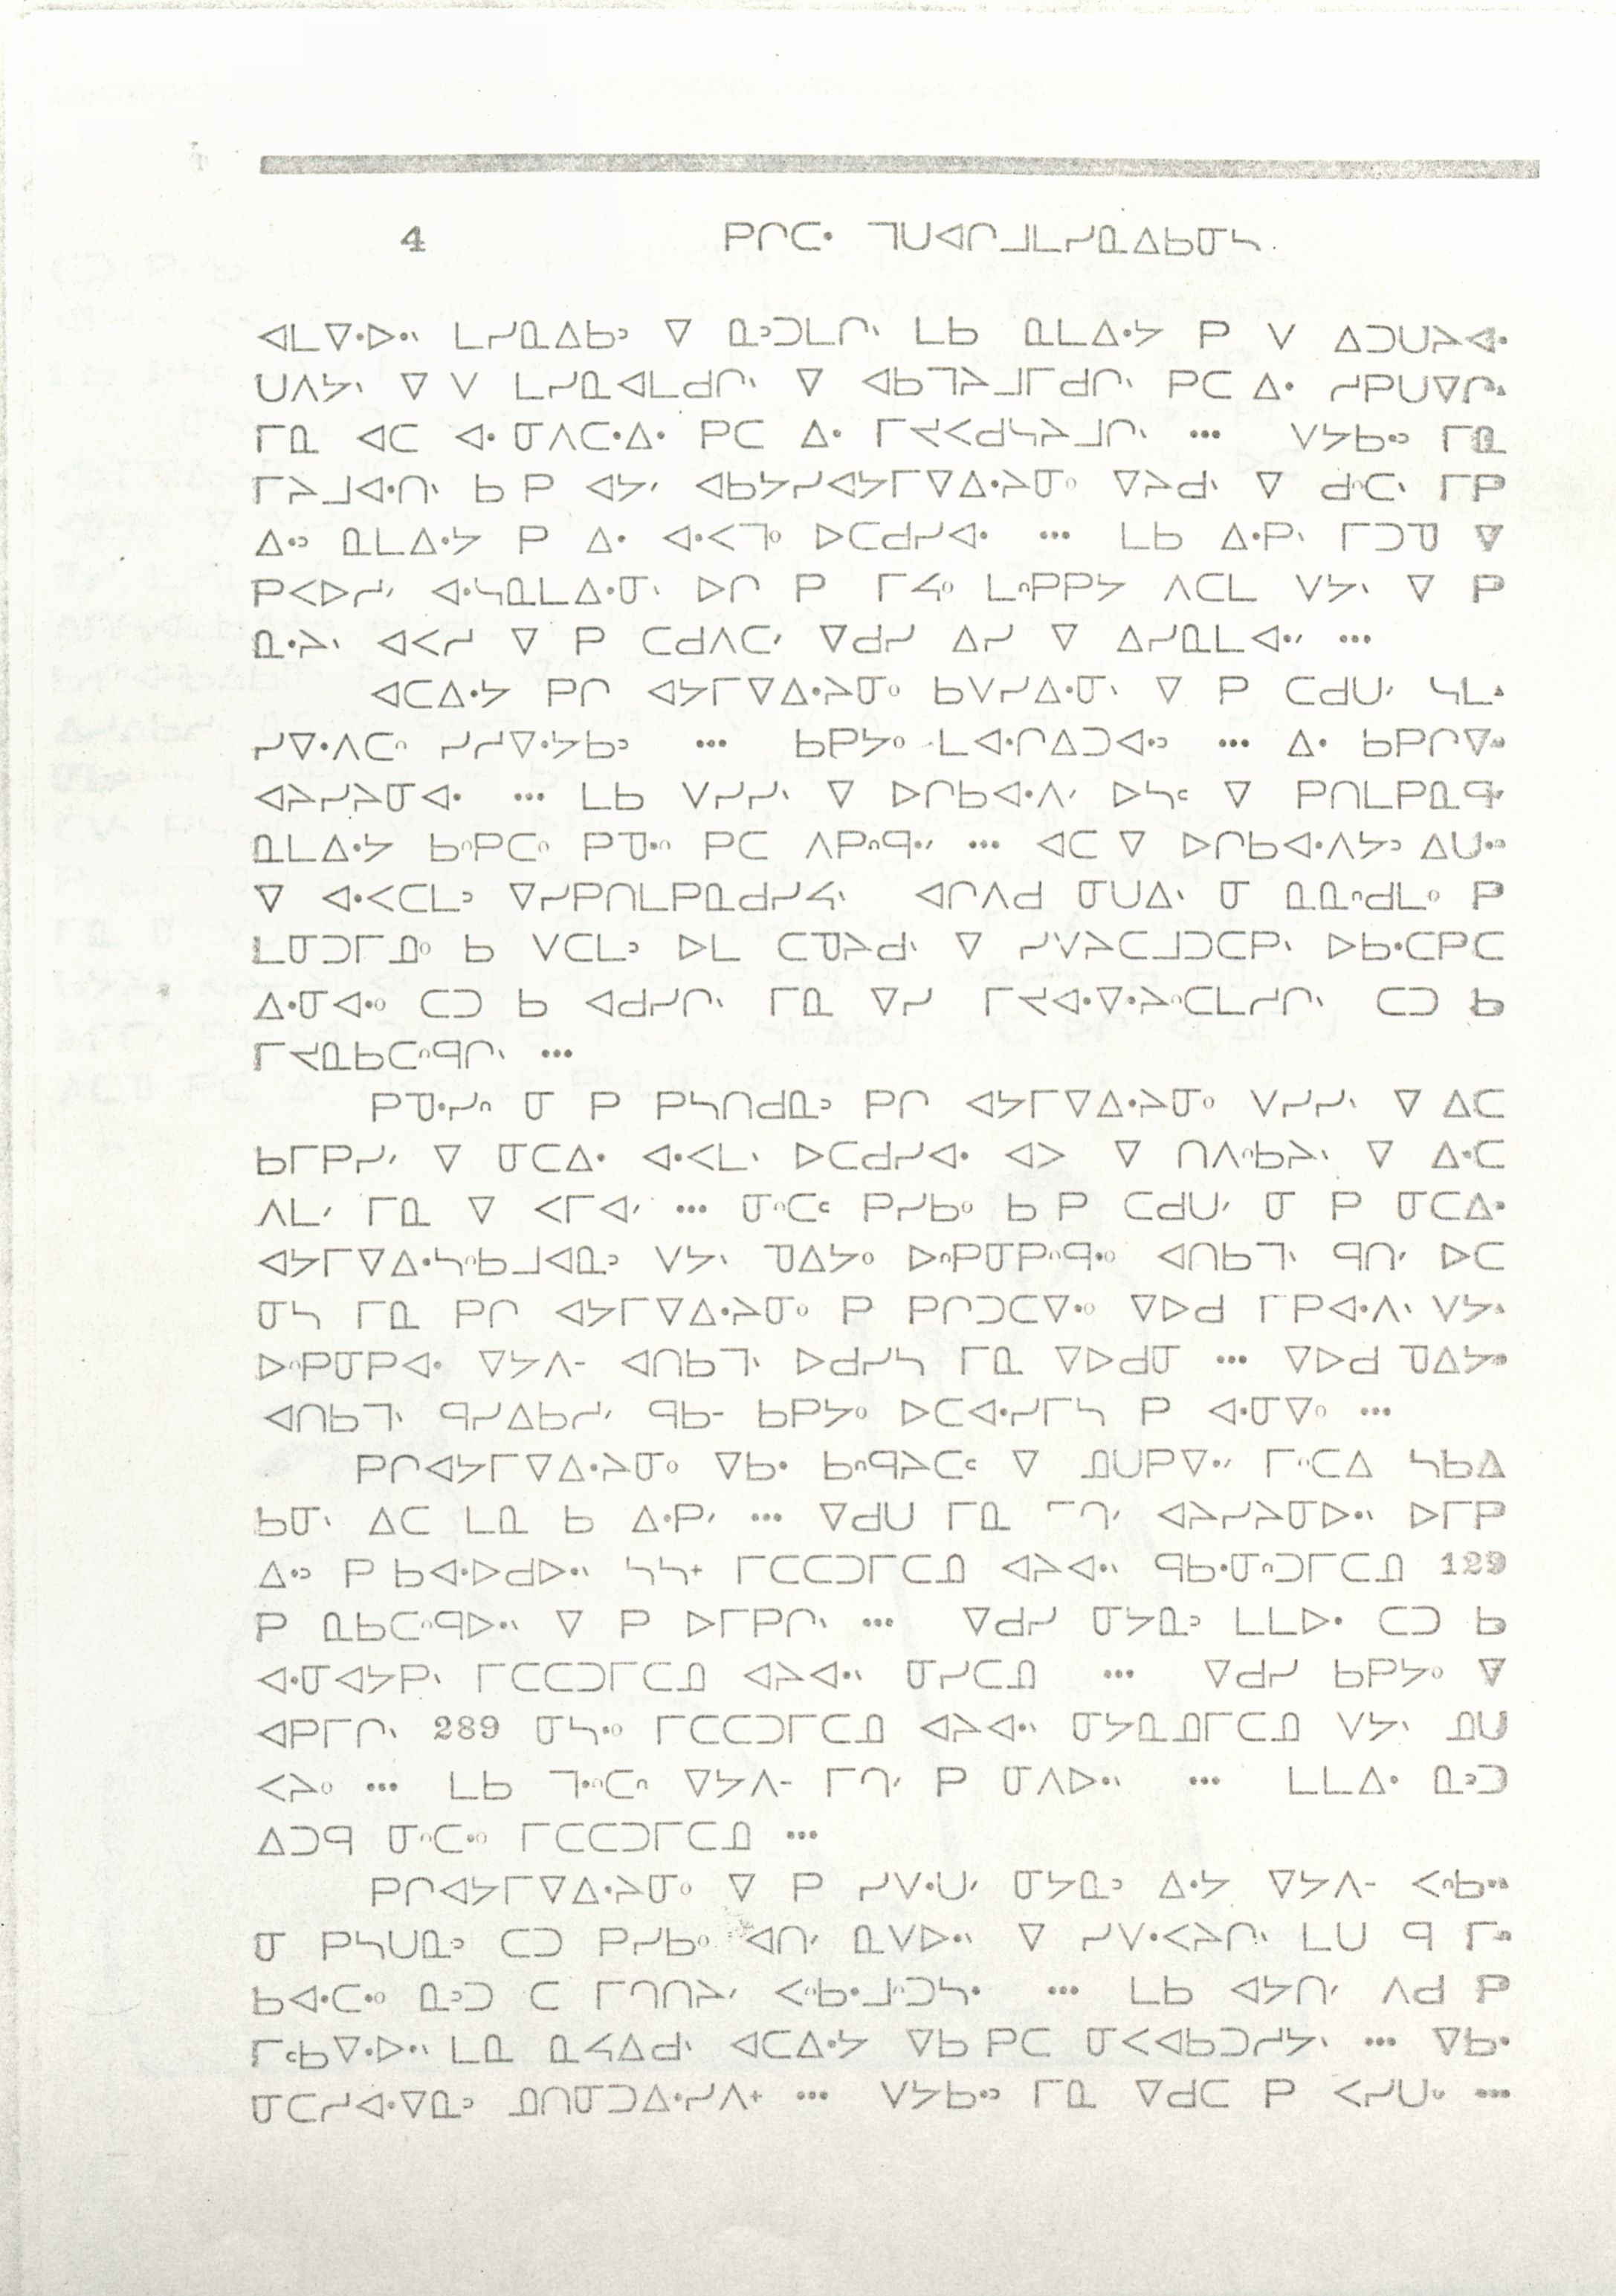 4 ᑭᒋᑕᐧ ᒣᑌᐊᒋᒧᒪᓯᓇᐃᑲᓂᓴ
ᐊᒪᐁᐧᐅᐧᐠ ᒪᓯᓇᐃᑲᐣ ᐁ ᓇᐣᑐᒪᒋᐠ ᒪᑲ ᓇᒪᐃᐧᔭ ᑭ ᐯ ᐃᑐᑌᔨᐊᐧ
ᑌᐱᔭᐠ ᐁ ᐯ ᒪᓯᓇᐊᒪᑯᒋᐠ ᐁ ᐊᑲᒣᔨᒧᒥᑯᒋᐠ ᑭᑕ ᐃᐧ ᓯᑭᑌᐁᒋᐠ
ᒥᓇ ᐊᑕ ᐊᐧ ᓂᐱᑕᐧᐃᐧ ᑭᑕ ᐃᐧ ᒥᔪᐸᑯᓴᔨᒧᒋᐠ ... ᐯᔭᑲᐧᐣ ᒥᓇ
ᒥᔨᒧᐊᐧᑎᐠ ᑲ ᑭ ᐊᔭᐟ ᐊᑲᔭᓯᐊᔭᒥᐁᐃᐧᔨᓂᐤ ᐁᔨᑯᐠ ᐁ ᑯᐢᑕᐠ ᒥᑭ
ᐃᐧᐣ ᓇᒪᐃᐧᔭ ᑭ ᐃᐧ ᐊᐧᐸᒣᐤ ᐅᑕᑯᓯᐊᐧ ... ᒪᑲ ᐃᐧᑭᐠ ᒥᑐᓀ ᐁ
ᑭᐸᐅᓱᐟ ᐊᐧᓴᓇᒪᐃᐧᓂᐠ ᐅᒋ ᑭ ᒥᔦᐤ ᒪᐢᑭᑭᔭ ᐱᑕᒪ ᐯᔭᐠ ᐁ ᑭ
ᓇᐧᔨᐠ ᐊᐸᓱ ᐁ ᑭ ᑕᑯᐱᑕᐟ ᐁᑯᓯ ᐃᓯ ᐁ ᐃᓯᓇᒪᐊᐧᐟ ...
ᐊᑕᐃᐧᔭ ᑭᒋ ᐊᔭᒥᐁᐃᐧᔨᓂᐤ ᑲᐯᓯᐃᐧᓂᐠ ᐁ ᑭ ᑕᑯᑌᐟ ᓴᒪᐠ
ᓯᐁᐧᐱᑕᐢ ᓯᓱᐁᐧᔭᑲᐣ ... ᑲᑭᔭᐤ ᒪᐊᐧᒋᐃᑐᐊᐧᐣ ... ᐃᐧ ᑲᑭᒋᐁᐤ
ᐊᔨᓯᔨᓂᐊᐧ ... ᒪᑲ ᐯᓯᓯᐠ ᐁ ᐅᒋᑲᐊᐧᐱᐟ ᐅᓴᒼ ᐁ ᑭᑎᒪᑭᓇᑫᐟ
ᓇᒪᐃᐧᔭ ᑲᐢᑭᑕᐤ ᑭᓀᐧᐢ ᑭᑕ ᐱᑭᐢᑫᐧᐟ ... ᐊᑕ ᐁ ᐅᒋᑲᐊᐧᐱᔭᐣ ᐃᑌᐧᐤ
ᐁ ᐊᐧᐸᑕᒪᐣ ᐁᓯᑭᑎᒪᑭᓇᑯᓯᔦᐠ ᐊᒋᐱᑯ ᓂᑌᐃᐠ ᓂ ᓇᓇᐢᑯᒪᐤ ᑭ
ᒪᓂᑐᒥᓄᐤ ᑲ ᐯᑕᒪᐣ ᐅᒪ ᑕᓀᔨᑯᐠ ᐁ ᓯᐯᔨᑕᒧᑐᑕᑭᐠ ᐅᑲᐧᑕᑭᑕ
ᐃᐧᓂᐊᐧᐤ ᑕᑐ ᑲ ᐊᑯᓯᒋᐠ ᒥᓇ ᐁᓯ ᒥᔪᐊᐧᐁᐧᔨᐢᑕᒪᓱᒋᐠ ᑕᑐ ᑲ
ᒥᔪᓇᑲᑕᐢᑫᒋᐠ ...
ᑭᓀᐧᓯᐢ ᓂ ᑭ ᑭᓴᑎᑯᓇᐣ ᑭᒋ ᐊᔭᒥᐁᐃᐧᔨᓂᐤ ᐯᓯᓯᐠ ᐁ ᐃᑕ
ᑲᒥᑭᓯᐟ ᐁ ᓂᑕᐃᐧ ᐊᐧᐸᒪᐠ ᐅᑕᑯᓯᐊᐧ ᐊᐳ ᐁ ᑎᐱᐢᑲᔨᐠ ᐁ ᐃᐧᑕ
ᐱᒪᐟ ᒥᓇ ᐁ ᐸᒥᐊᐟ ... ᓂᐢᑕᒼ ᑭᓯᑲᐤ ᑲ ᑭ ᑕᑯᑌᐟ ᓂ ᑭ ᓂᑕᐃᐧ
ᐊᔭᒥᐁᐃᐧᓴᐢᑲᒧᐊᓇᐣ ᐯᔭᐠ ᓀᐃᔭᐤ ᐅᐢᑭᓂᑭᐢᑫᐧᐤ ᐊᑎᑲᒣᐠ ᑫᑎᐟ ᐅᑕ
ᓂᓴ ᒥᓇ ᑭᒋ ᐊᔭᒥᐁᐃᐧᔨᓂᐤ ᑭ ᑭᒋᑐᑕᐁᐧᐤ ᐁᐅᑯ ᒥᑭᐊᐧᐱᐠ ᐯᔭᐠ
ᐅᐢᑭᓂᑭᐊᐧ ᐁᔭᐱᐨ ᐊᑎᑲᒣᐠ ᐅᑯᓯᓴ ᒥᓇ ᐁᐅᑯᓂ ... ᐁᐅᑯ ᓀᐃᔭᐤ
ᐊᑎᑲᒣᐠ ᑫᓯᐃᑲᓱᐟ ᑫᑲᐨ ᑲᑭᔭᐤ ᐅᑕᐊᐧᓯᒥᓴ ᑭ ᐊᐧᓂᐁᐤ ...
ᑭᒋᐊᔭᒥᐁᐃᐧᔨᓂᐤ ᐁᑲᐧ ᑲᐢᑫᔨᑕᒼ ᐁ ᓄᑌᑭᐁᐧᐟ ᒥᐢᑕᐃ ᓴᑲᐃ
ᑲᓂᐠ ᐃᑕ ᒪᓇ ᑲ ᐃᐧᑭᐟ ... ᐁᑯᑌ ᒥᓇ ᒥᒉᐟ ᐊᔨᓯᔨᓂᐅᐧᐠ ᐅᒥᑭ
ᐃᐧᐣ ᑭ ᑲᐊᐧᐅᑯᐅᐧᐠ ᓴᓴᐩ ᒥᑕᑕᑐᒥᑕᓄ ᐊᔨᐊᐧᐠ ᑫᑲᐧᓂᐢᑐᒥᑕᓄ 129
ᑭ ᓇᑲᑕᐢᑫᐅᐧᐠ ᐁ ᑭ ᐅᒥᑭᒋᐠ ... ᐁᑯᓯ ᓂᔭᓇᐣ ᒪᒪᐅᐧ ᑕᑐ ᑲ
ᐊᐧᓂᐊᔭᑭᐠ ᒥᑕᑕᑐᒥᑕᓄ ᐊᔨᐊᐧᐠ ᓂᓯᑕᓄ ... ᐁᑯᓯ ᑲᑭᔭᐤ ᐁ
ᐊᑭᒥᒋᐠ 289 ᓂᓴᐧᐤ ᒥᑕᑕᑐᒥᑕᓄ ᐊᔨᐊᐧᐠ ᓂᔭᓇᓄᒥᑕᓄ ᐯᔭᐠ ᓄᑌ
ᐸᔨᐤ ... ᒪᑲ ᒣᐧᐢᑕᐢ ᐁᔭᐱᐨ ᒥᒉᐟ ᑭ ᓂᐱᐅᐧᐠ ... ᒪᒪᐃᐧ ᓇᐣᑐ
ᐃᑐᑫ ᓂᐢᑕᐧᐤ ᒥᑕᑕᑐᒥᑕᓄ ...
ᑭᒋᐊᔭᒥᐁᐃᐧᔨᓂᐤ ᐁ ᑭ ᓯᐯᐧᑌᐟ ᓂᔭᓇᐣ ᐃᐧᔭ ᐁᔭᐱᐨ ᐸᐢᑲᐧᐤ
ᓂ ᑭᓴᑌᓇᐣ ᑕᑐ ᑭᓯᑲᐤ ᐊᑎᐟ ᓇᐯᐅᐧᐠ ᐁ ᓯᐯᐧᐸᔨᒋᐠ ᒪᑌ ᑫ ᒥᐢ
ᑲᐊᐧᑕᐧᐤ ᓇᐣᑐ ᑕ ᒥᒋᑎᔨᐟ ᐸᐢᑲᐧᒧᐢᑐᓴᐧ ... ᒪᑲ ᐊᔭᑎᐟ ᐱᑯ ᑭ
ᒥᐢᑲᐁᐧᐅᐧᐠ ᒪᓇ ᓇᔦᐃᑯᐠ ᐊᑕᐃᐧᔭ ᐁᑲ ᑭᑕ ᓂᐸᐊᑲᑐᓱᔭᐠ ... ᐁᑲᐧ
ᓂᑕᓱᐊᐧᐁᓇᐣ ᓄᑎᓂᑐᐃᐧᓯᐱᐩ ... ᐯᔭᑲᐧᐣ ᒥᓇ ᐁᑯᑕ ᑭ ᐸᓯᑌᐤ ...